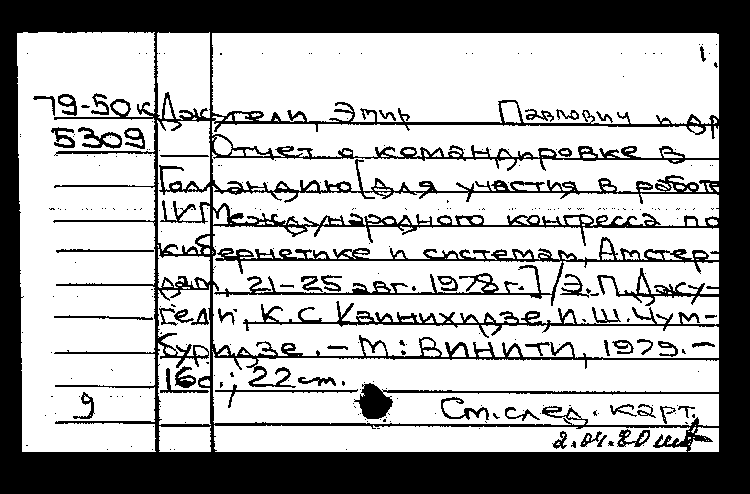 1.
79-50к Джугели, Эмир Павлович и др
5309 Отчет о командировке в
Голландию [для участия в работе
IV Международного конгресса по
кибернетике и системам, Амстер-
дам, 21-25 авг. 1978 г.] / Э.П. Джу-
гели, К.С. Квинихидзе, И.Ш. Чум-
буридзе. - М.: ВИНИТИ, 1979. -
16 с.; 22 см.
9 См. след. карт.
2.04.80